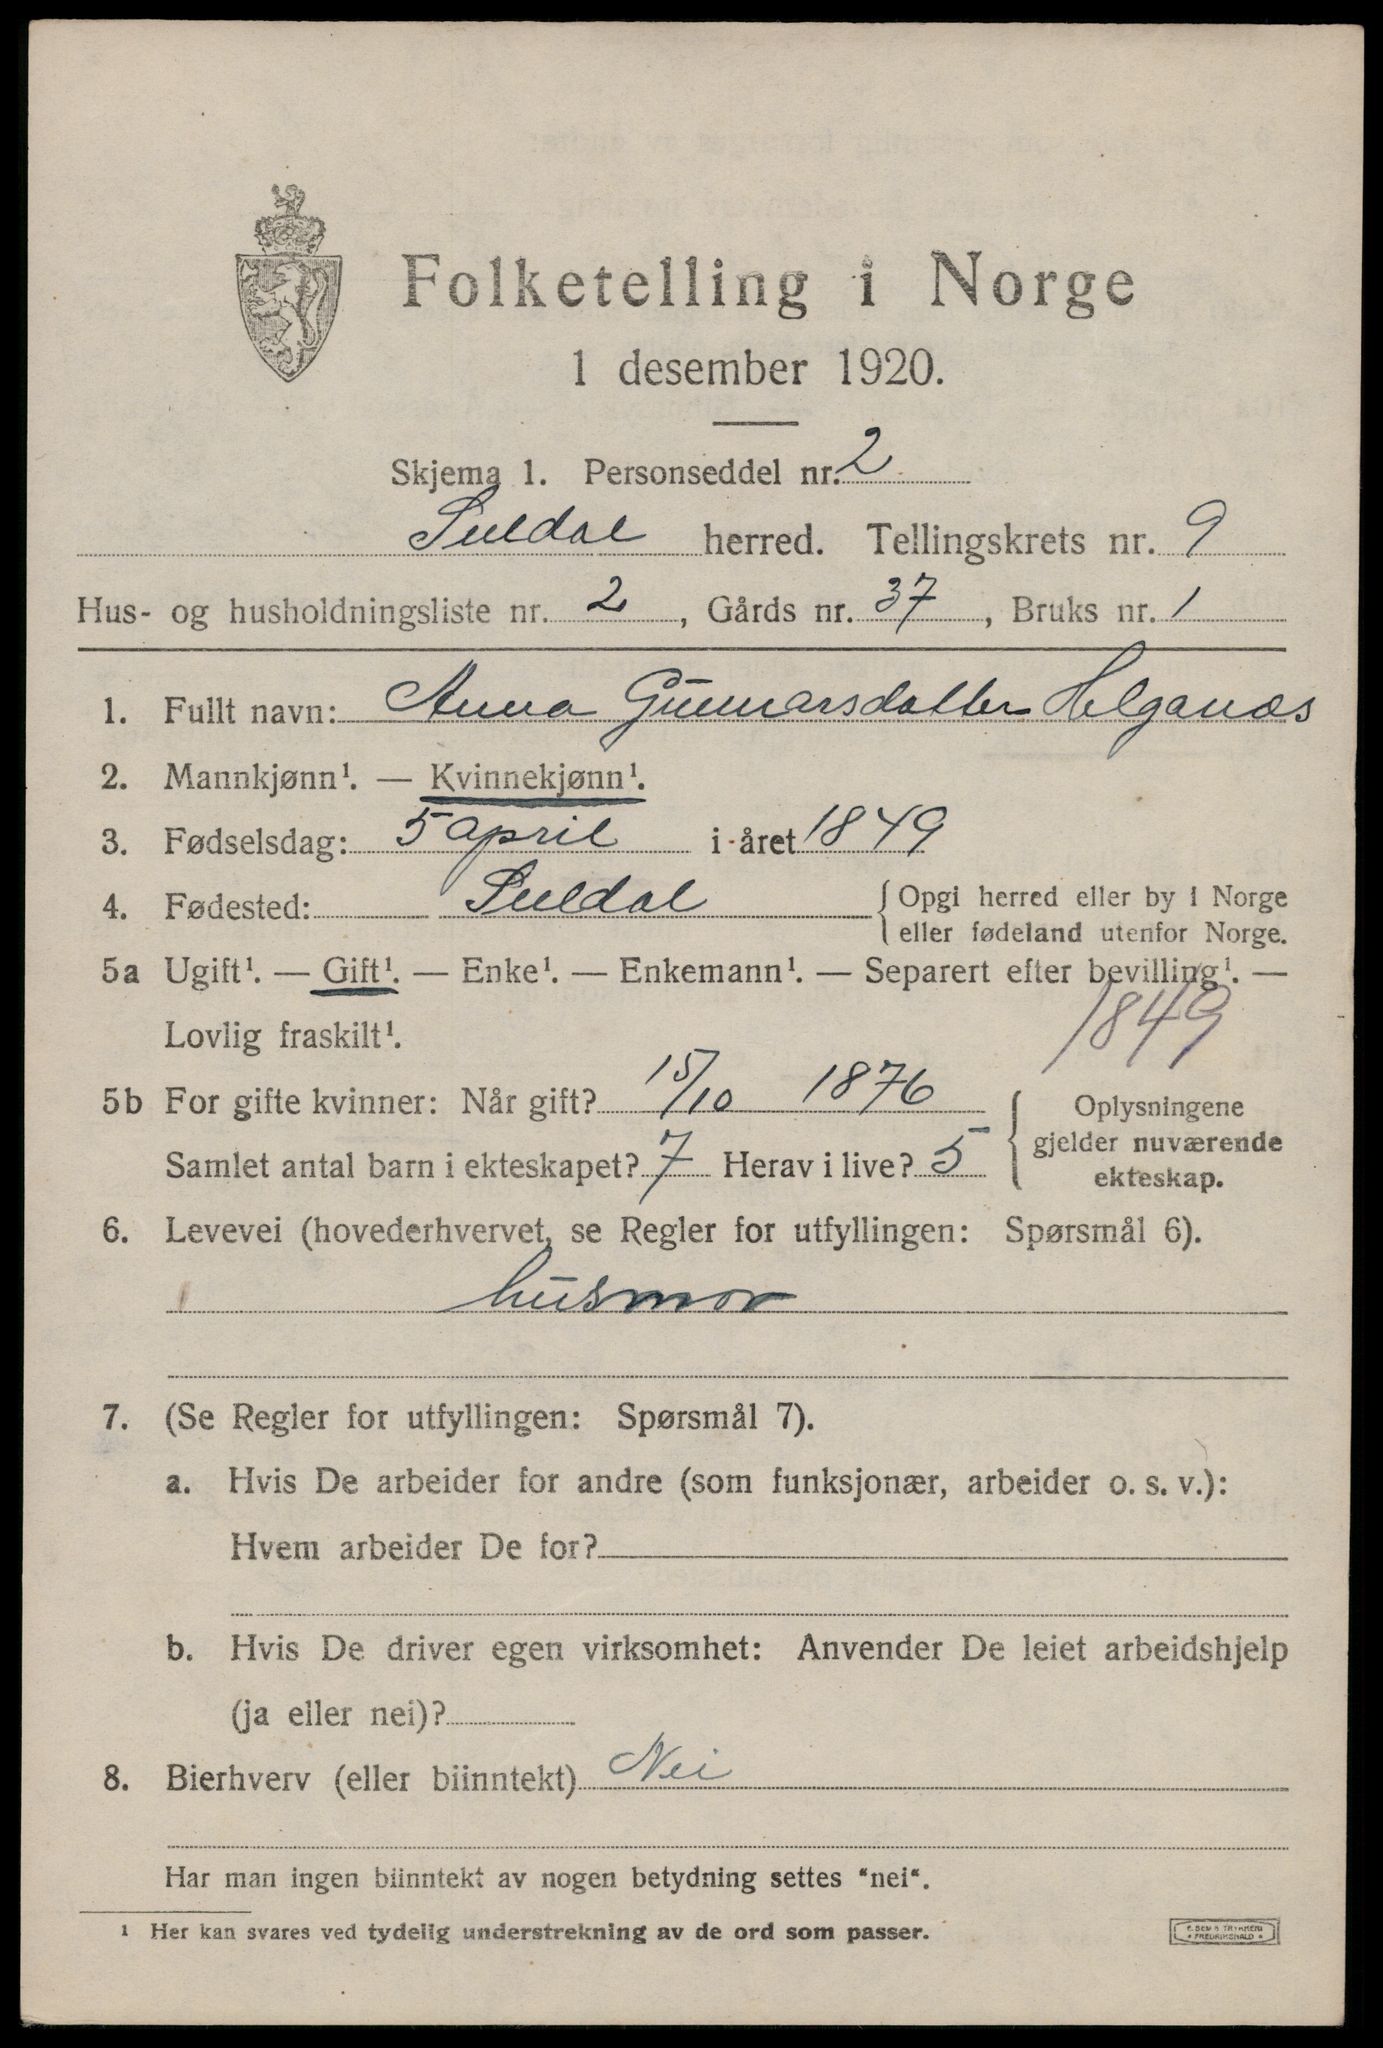 Folketelling i Norge
1 desember 1920.
Skjema 1. Personseddel nr. 2
Suldal herred. Tellingskrets nr. 9
Hus- og husholdningsliste nr. 2, Gårds nr. 37, Bruks nr. 1
1. Fullt navn: Anna Gunnarsdatter Helganæs
2. Mannkjønn¹. — Kvinnekjønn¹.
3. Fødselsdag: 5 april i året 1849
4. Fødested: Suldal { Opgi herred eller by i Norge
eller fødeland utenfor Norge.
5a Ugift¹. — Gift¹. — Enke¹. — Enkemann¹. — Separert efter bevilling¹. —
Lovlig fraskilt¹. 1849
5b For gifte kvinner: Når gift? 15/10 1876 { Oplysningene
gjelder nuværende
ekteskap.
Samlet antal barn i ekteskapet? 7 Herav i live? 5
6. Levevei (hovederhvervet, se Regler for utfyllingen: Spørsmål 6).
husmor
7. (Se Regler for utfyllingen: Spørsmål 7).
a. Hvis De arbeider for andre (som funksjonær, arbeider o. s. v.):
Hvem arbeider De for?
b. Hvis De driver egen virksomhet: Anvender De leiet arbeidshjelp
(ja eller nei)?
8. Bierhverv (eller biinntekt) Nei
Har man ingen biinntekt av nogen betydning settes "nei".
¹ Her kan svares ved tydelig understrekning av de ord som passer.
E. SEM'S TRYKKERI
FREDRIKSHALD